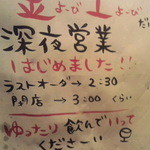 金よーび 土よーび
だけ
深夜営業
はじめました!!
ラストオーダー→2:30
閉店→3:00くらい
ゆったり飲んでいって
くださーい